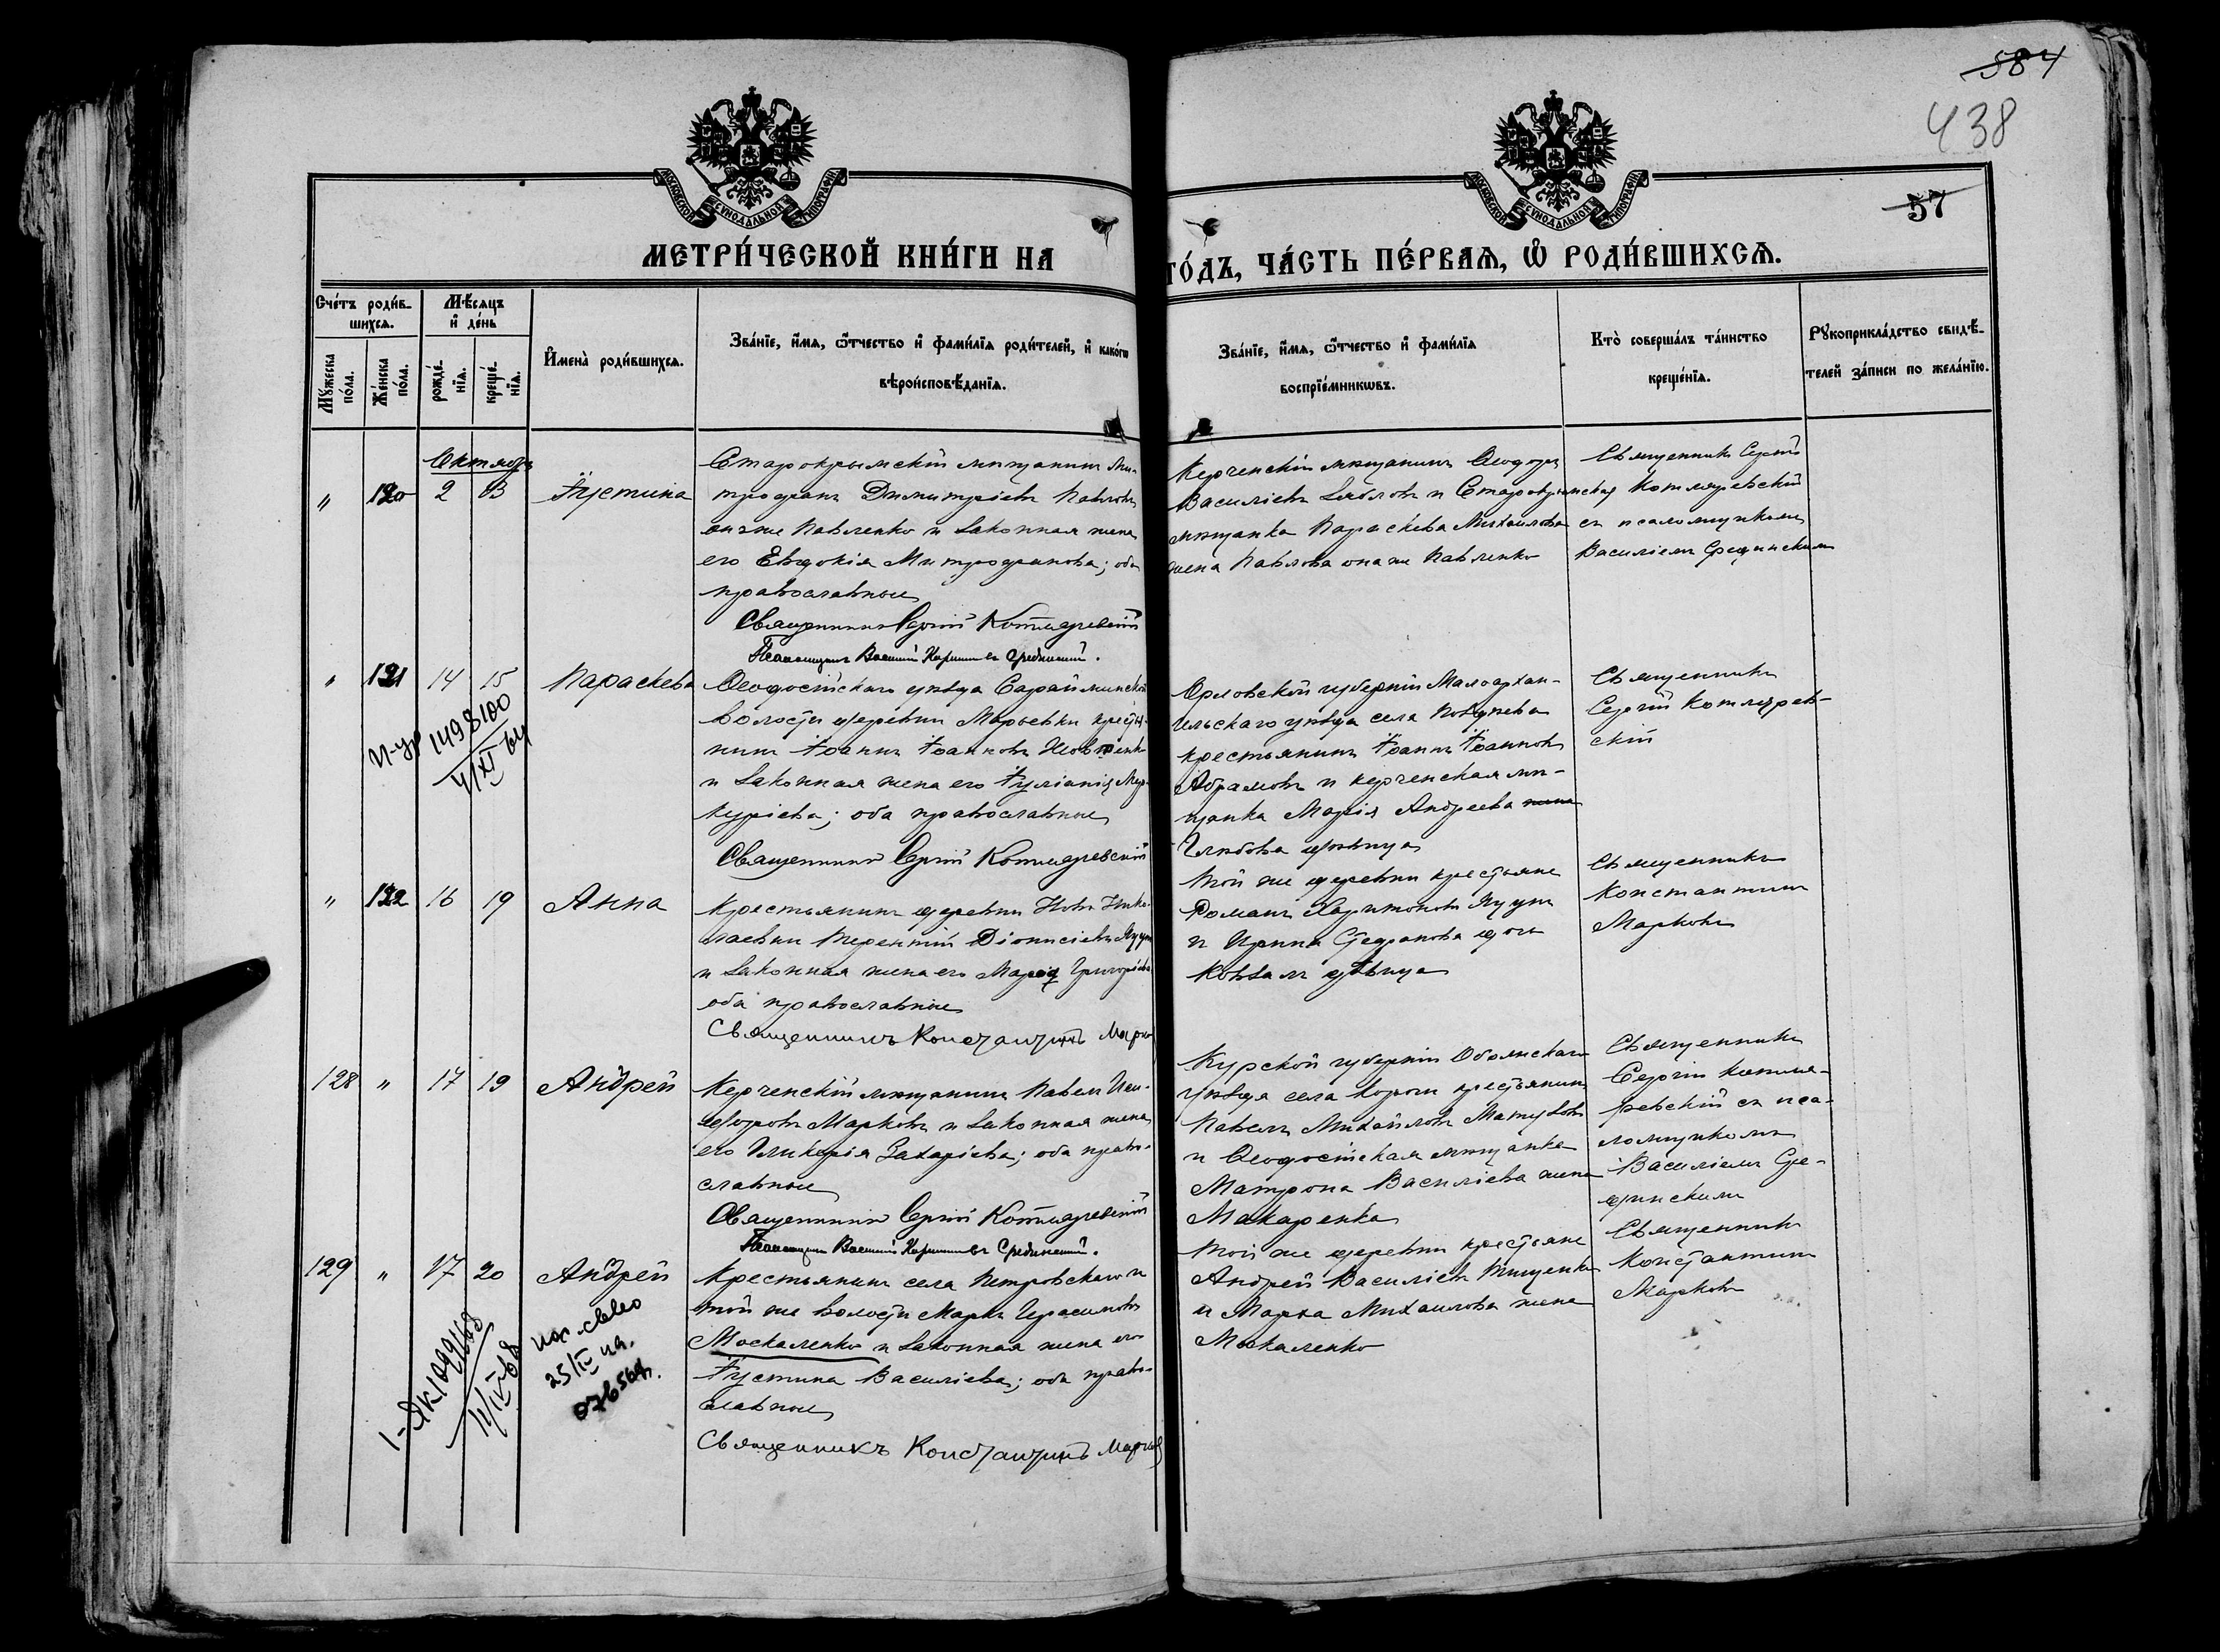 584
438
57
МОСКОВСКОЙ СУНОДАЛЬНОЙ ТИПОГРАФІИ
МОСКОВСКОЙ СУНОДАЛЬНОЙ ТИПОГРАФІИ
МЕТРИ́ЧЕСКОЙ КНИ́ГИ НА
ГО́ДЪ, ЧА́СТЬ ПЕ́РВАѦ, Ѡ҆ РОДИ́ВШИХСѦ.
Сче́тъ роди́в-
шихсѧ.
Мꙋ́жеска по́ла.
Же́нска по́ла.
Мѣ́сѧцъ
и҆ де́нь
рожде́-
нїѧ.
креще́-
нїѧ.
И҆мена̀ роди́вшихсѧ.
Зва́нїе, и҆́мѧ, ѻ҆́тчество и҆ фами́лїѧ роди́телей, и҆ како́гѡ
вѣроисповѣ́данїѧ.
Зва́нїе, и҆́мѧ, ѻ҆́тчество и҆ фами́лїѧ
воспрїе́мникѡвъ.
Кто̀ соверша́лъ та́инство
креще́нїѧ.
Рꙋкоприкла́дство свидѣ́-
телей за́писи по жела́нїю.
Октябрь
" 120 2 03 Іустина
Старокрымскій мѣщанинъ Ми-
трофанъ Димитріевъ Павловъ
онъ же Павленко и законная жена
его Евдокія Митрофанова; оба
православные
Священникъ Сергій Котляревскій
Псаломщикъ Василій Срединскій.
Керченскій мѣщанинъ Ѳеодоръ
Васильевъ Зябловъ и Старокрымская
мѣщанка Параскева Михаилова
жена Павлова она же Павленко
Священникъ Сергій
Котляревскій
съ псаломщикомъ
Василіемъ Срединскимъ
" 121 14 15 Параскева
Ѳеодосійскаго уѣзда Сарайминской
волости деревни Марьевки крестья-
нинъ Іоаннъ Іоанновъ
и законная жена его Іуліанія Мер-
куріева; оба православные
Священникъ Сергій Котляревскій
Орловской губерніи Малоархан-
гельскаго уѣзда села
крестьянинъ Іоаннъ Іоанновъ
Абрамовъ и керченская мѣ-
щанка Марія Андреева жена
Глѣбова дѣвица
Священникъ
Сергій Котлярев-
скій
1498100
4/XI 64
" 122 16 19 Анна
Крестьянинъ деревни Ново Нико-
лаевки Терентій Діонисіевъ Яцунъ
и законная жена его Марія Григоріева
оба православные
Священникъ Константинъ Марковъ
Той же деревни крестьяне
Романъ Харитоновъ Яцунъ
и Ирина Стефанова дочь
Ковзалъ дѣвица
Священникъ
Константинъ
Марковъ
128 " 17 19 Андрей
Керченскій мѣщанинъ Павелъ Иси-
доровъ Марковъ и законная жена
его Гликерія Захаріева; оба право-
славные
Священникъ Сергій Котляревскій
Псаломщикъ Василій Срединскій.
Курской губерніи Обоянскаго
уѣзда села Корочи крестьянинъ
Павелъ Михайловъ Матузовъ
и Ѳеодосійская мѣщанка
Матрона Василіева жена
Макаренка
Священникъ
Сергій Котля-
ревскій съ пса-
ломщикомъ
Василіемъ Сре-
динскимъ
129 " 17 20 Андрей
Крестьянинъ села Петровскаго и
той же волости Маркъ Герасимовъ
Москаленко и законная жена его
Іустина Василіева; оба право-
славные
Священникъ Константинъ Марковъ
Той же деревни крестьяне
Андрей Василіевъ Тищенко
и Марѳа Михаилова жена
Москаленко
Священникъ
Константинъ
Марковъ
25/IV